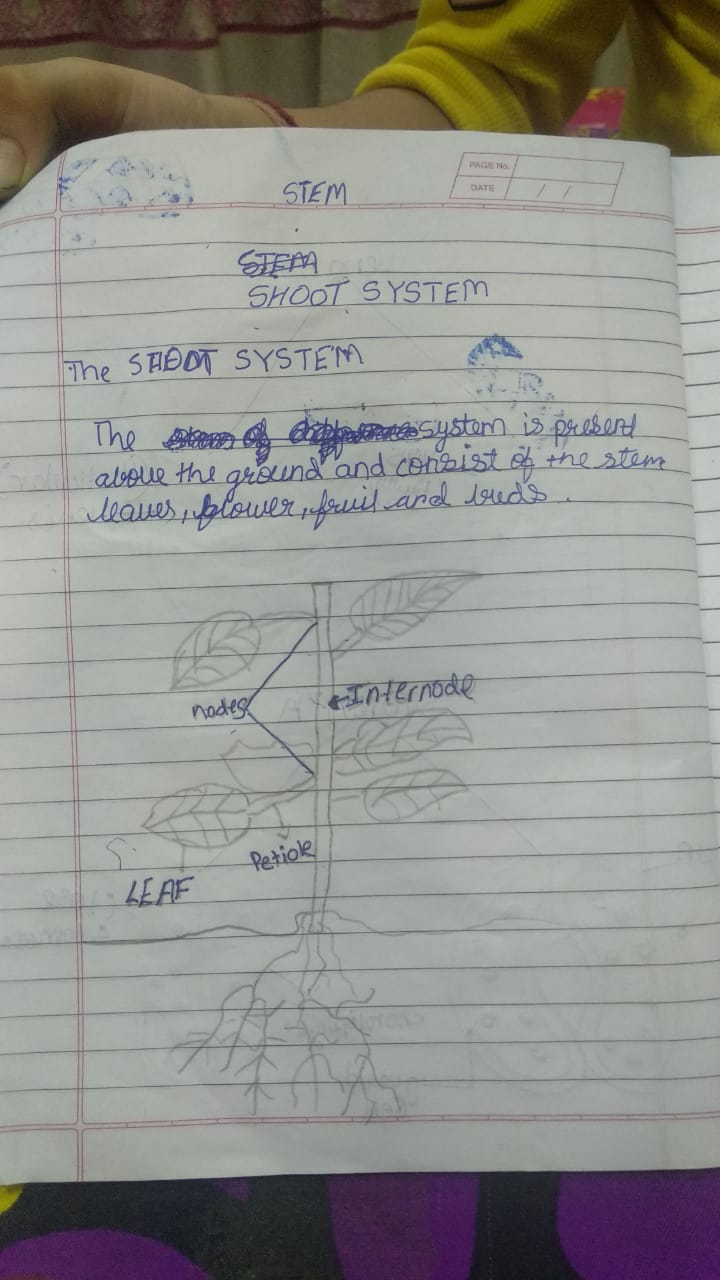 STEM
PAGE No.
DATE / /
STEM
SHOOT SYSTEM
The SHOOT SYSTEM
The system is present
above the ground and consist of the stem
leaves, flower, fruit and buds.
nodes
Internode
Petiole
LEAF